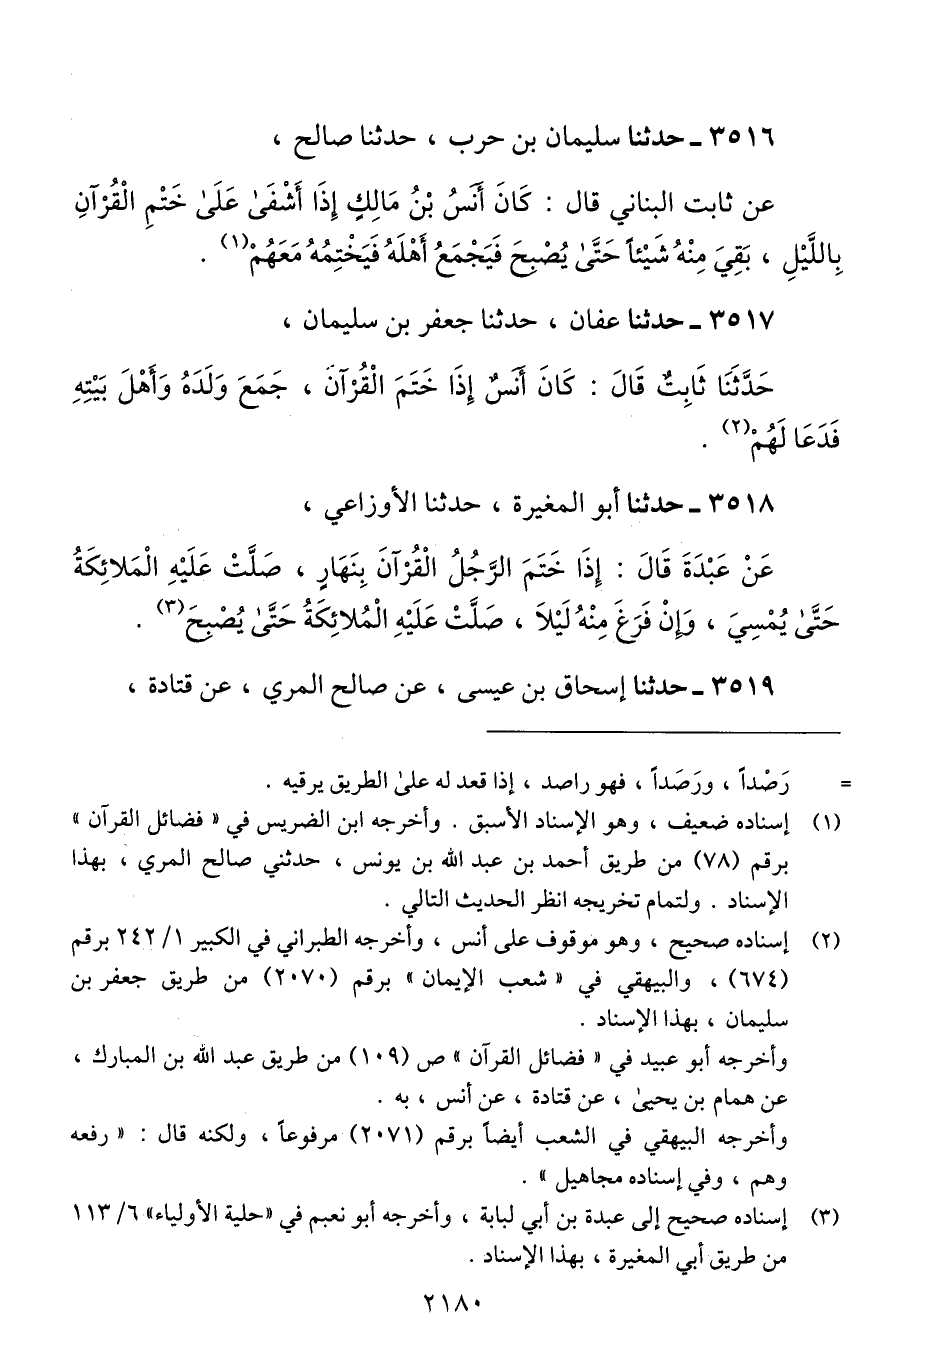 ٣٥١٦ ـ حدثنا سليمان بن حرب ، حدثنا صالح ،
عن ثابت البناني قال : كَانَ أَنَسُ بْنُ مَالِكٍ إِذَا أَشْفَىٰ عَلَىٰ خَتْمِ الْقُرْآنِ
بِاللَّيْلِ ، بَقِيَ مِنْهُ شَيْئاً حَتَّىٰ يُصْبِحَ فَيَجْمَعُ أَهْلَهُ فَيَخْتِمُهُ مَعَهُمْ(١) .
٣٥١٧ ـ حدثنا عفان ، حدثنا جعفر بن سليمان ،
حَدَّثَنَا ثَابِتٌ قَالَ : كَانَ أَنَسٌ إِذَا خَتَمَ الْقُرْآنَ ، جَمَعَ وَلَدَهُ وَأَهْلَ بَيْتِهِ
فَدَعَا لَهُمْ(٢) .
٣٥١٨ ـ حدثنا أبو المغيرة ، حدثنا الأوزاعي ،
عَنْ عَبْدَةَ قَالَ : إِذَا خَتَمَ الرَّجُلُ الْقُرْآنَ بِنَهَارٍ ، صَلَّتْ عَلَيْهِ الْمَلائِكَةُ
حَتَّىٰ يُمْسِيَ ، وَإِنْ فَرَغَ مِنْهُ لَيْلاً ، صَلَّتْ عَلَيْهِ الْمُلائِكَةُ حَتَّىٰ يُصْبِحَ(٣) .
٣٥١٩ ـ حدثنا إسحاق بن عيسى ، عن صالح المري ، عن قتادة ،
= رَصْداً ، ورَصَداً ، فهو راصد ، إذا قعد له علىٰ الطريق يرقبه .
(١) إسناده ضعيف ، وهو الإسناد الأسبق . وأخرجه ابن الضريس في « فضائل القرآن »
برقم (٧٨) من طريق أحمد بن عبد الله بن يونس ، حدثني صالح المري ، بهذا
الإسناد . ولتمام تخريجه انظر الحديث التالي .
(٢) إسناده صحيح ، وهو موقوف على أنس ، وأخرجه الطبراني في الكبير ١/ ٢٤٢ برقم
(٦٧٤) ، والبيهقي في « شعب الإيمان » برقم (٢٠٧٠) من طريق جعفر بن
سليمان ، بهذا الإسناد .
وأخرجه أبو عبيد في « فضائل القرآن » ص (١٠٩) من طريق عبد الله بن المبارك ،
عن همام بن يحيىٰ ، عن قتادة ، عن أنس ، به .
وأخرجه البيهقي في الشعب أيضاً برقم (٢٠٧١) مرفوعاً ، ولكنه قال : « رفعه
وهم ، وفي إسناده مجاهيل » .
(٣) إسناده صحيح إلى عبدة بن أبي لبابة ، وأخرجه أبو نعيم في «حلية الأولياء» ٦/ ١١٣
من طريق أبي المغيرة ، بهذا الإسناد .
٢١٨٠